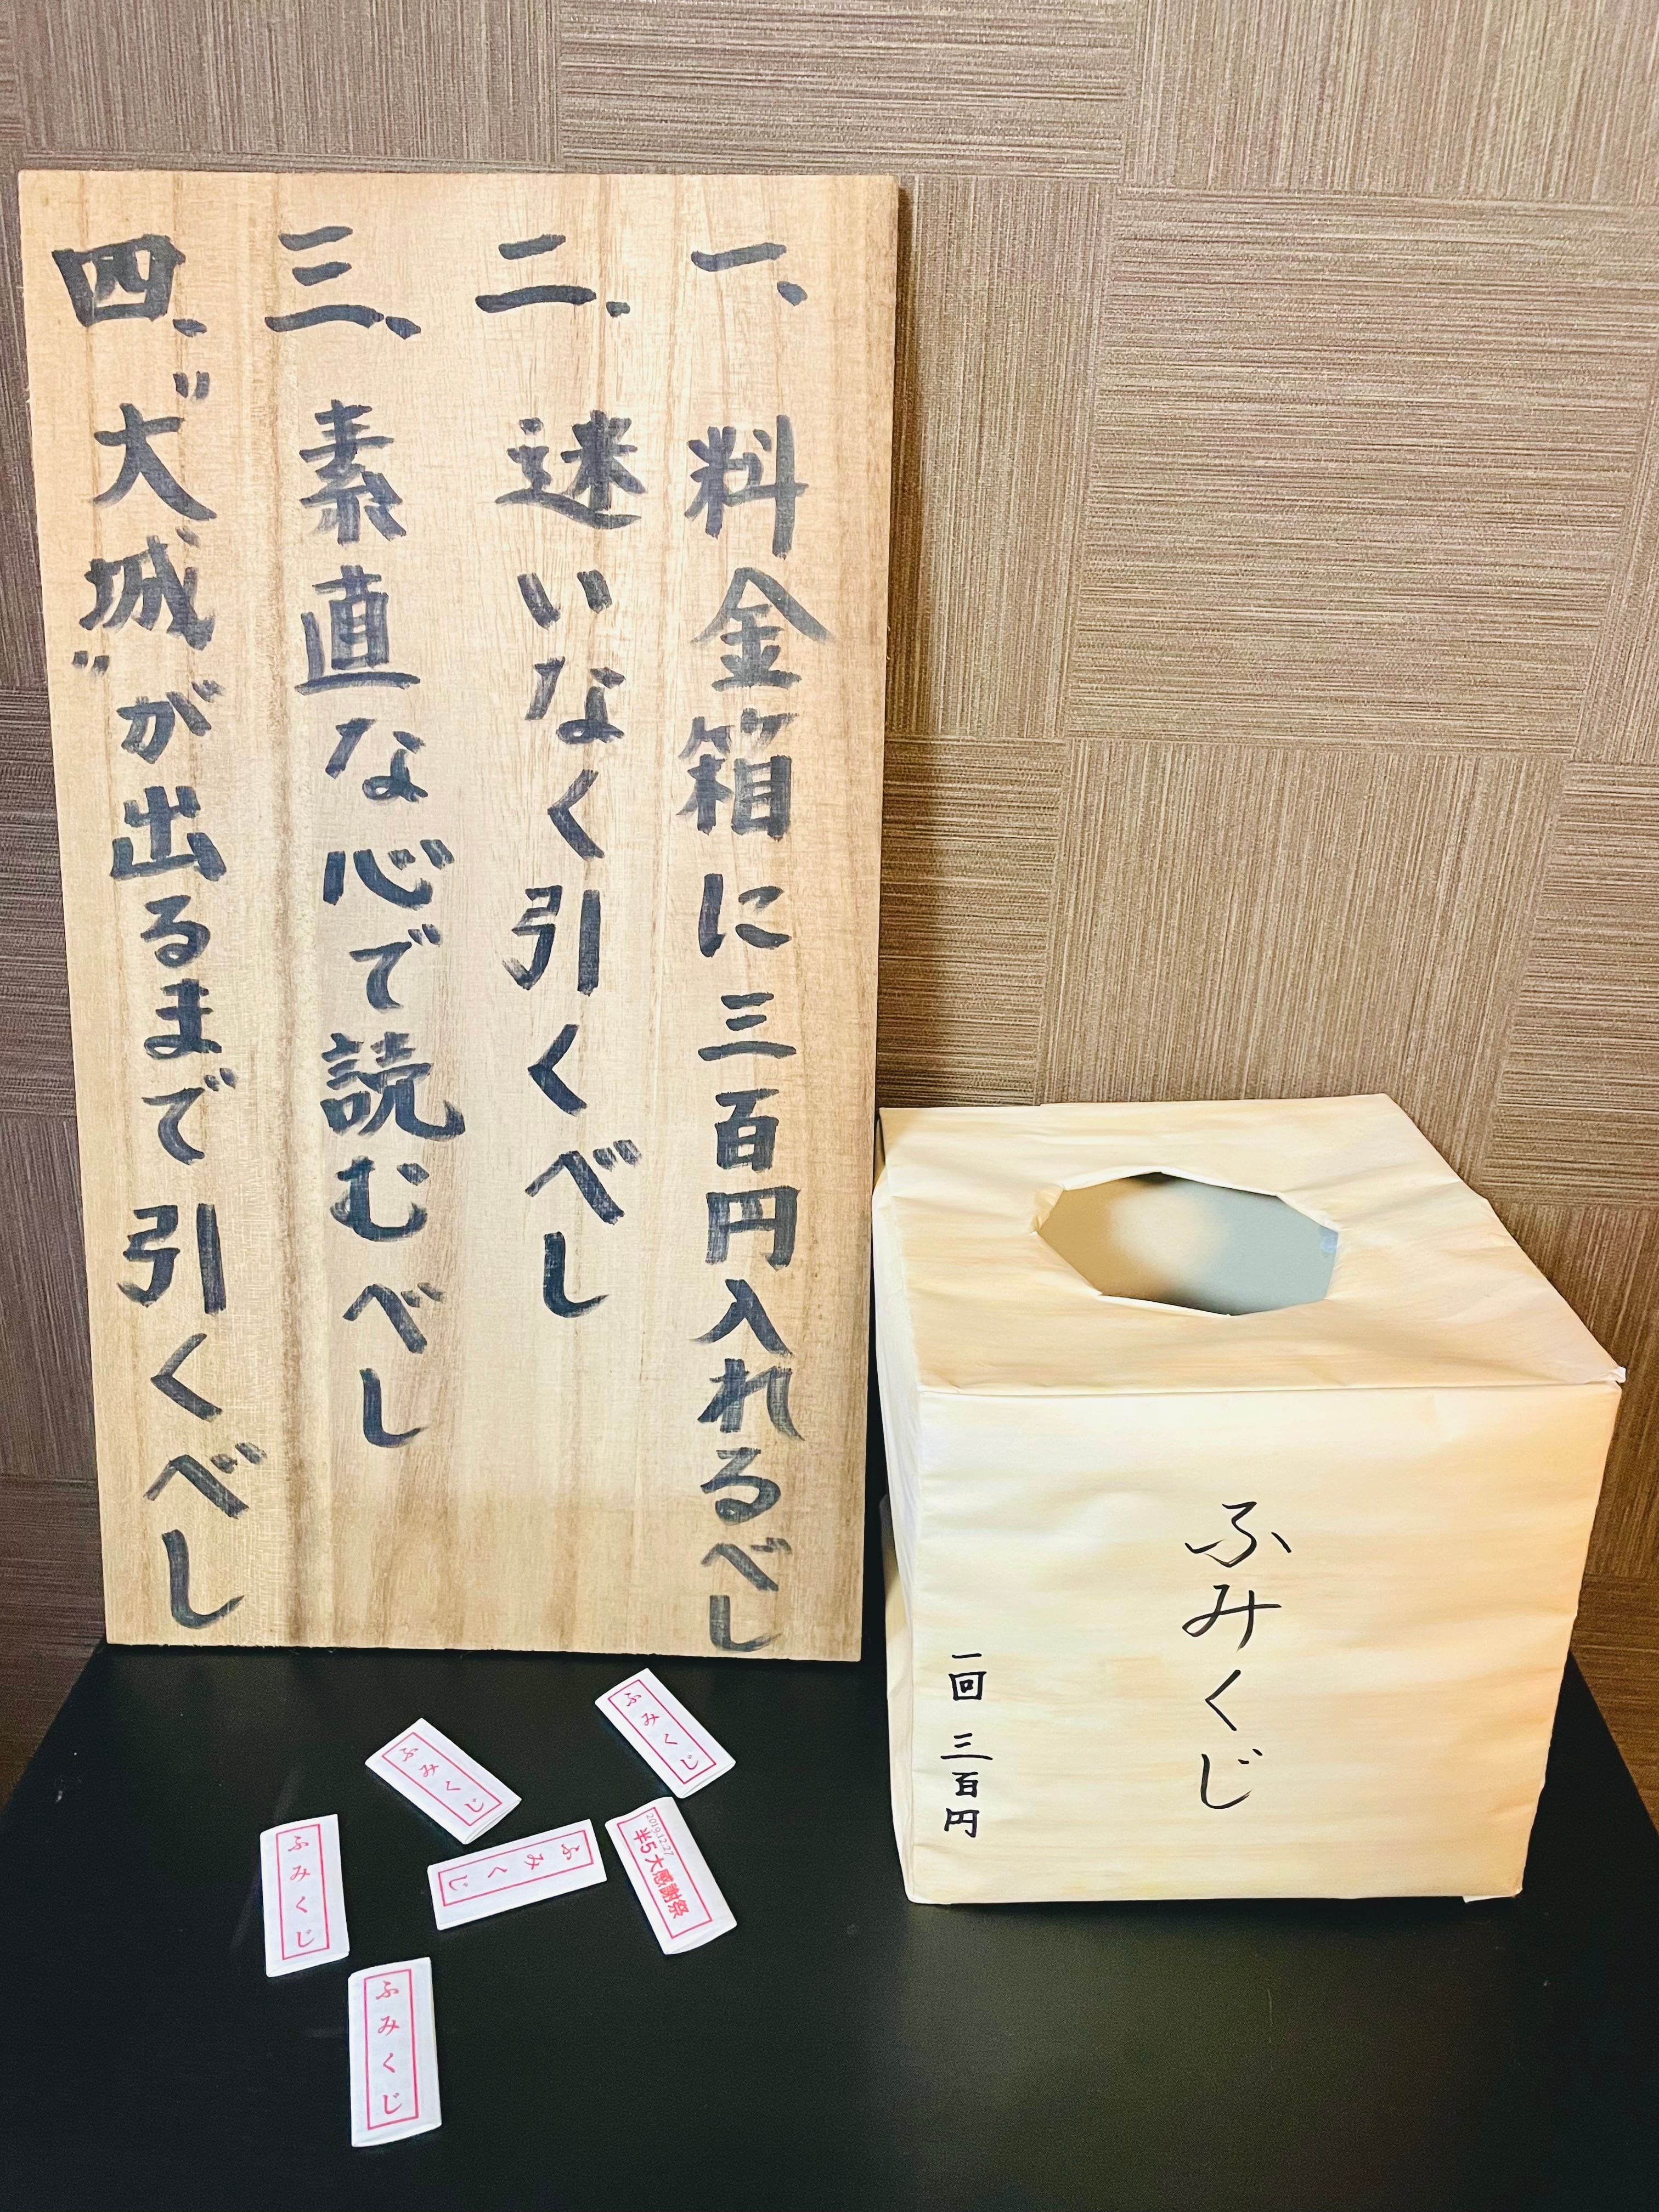 一、料金箱に三百円入れるべし
二、迷いなく引くべし
三、素直な心で読むべし
四、"大城"が出るまで引くべし
ふみくじ
一回 三百円
ふみくじ
ふみくじ
ふみくじ
ふみくじ
2019.12.27
半5大感謝祭
ふみくじ